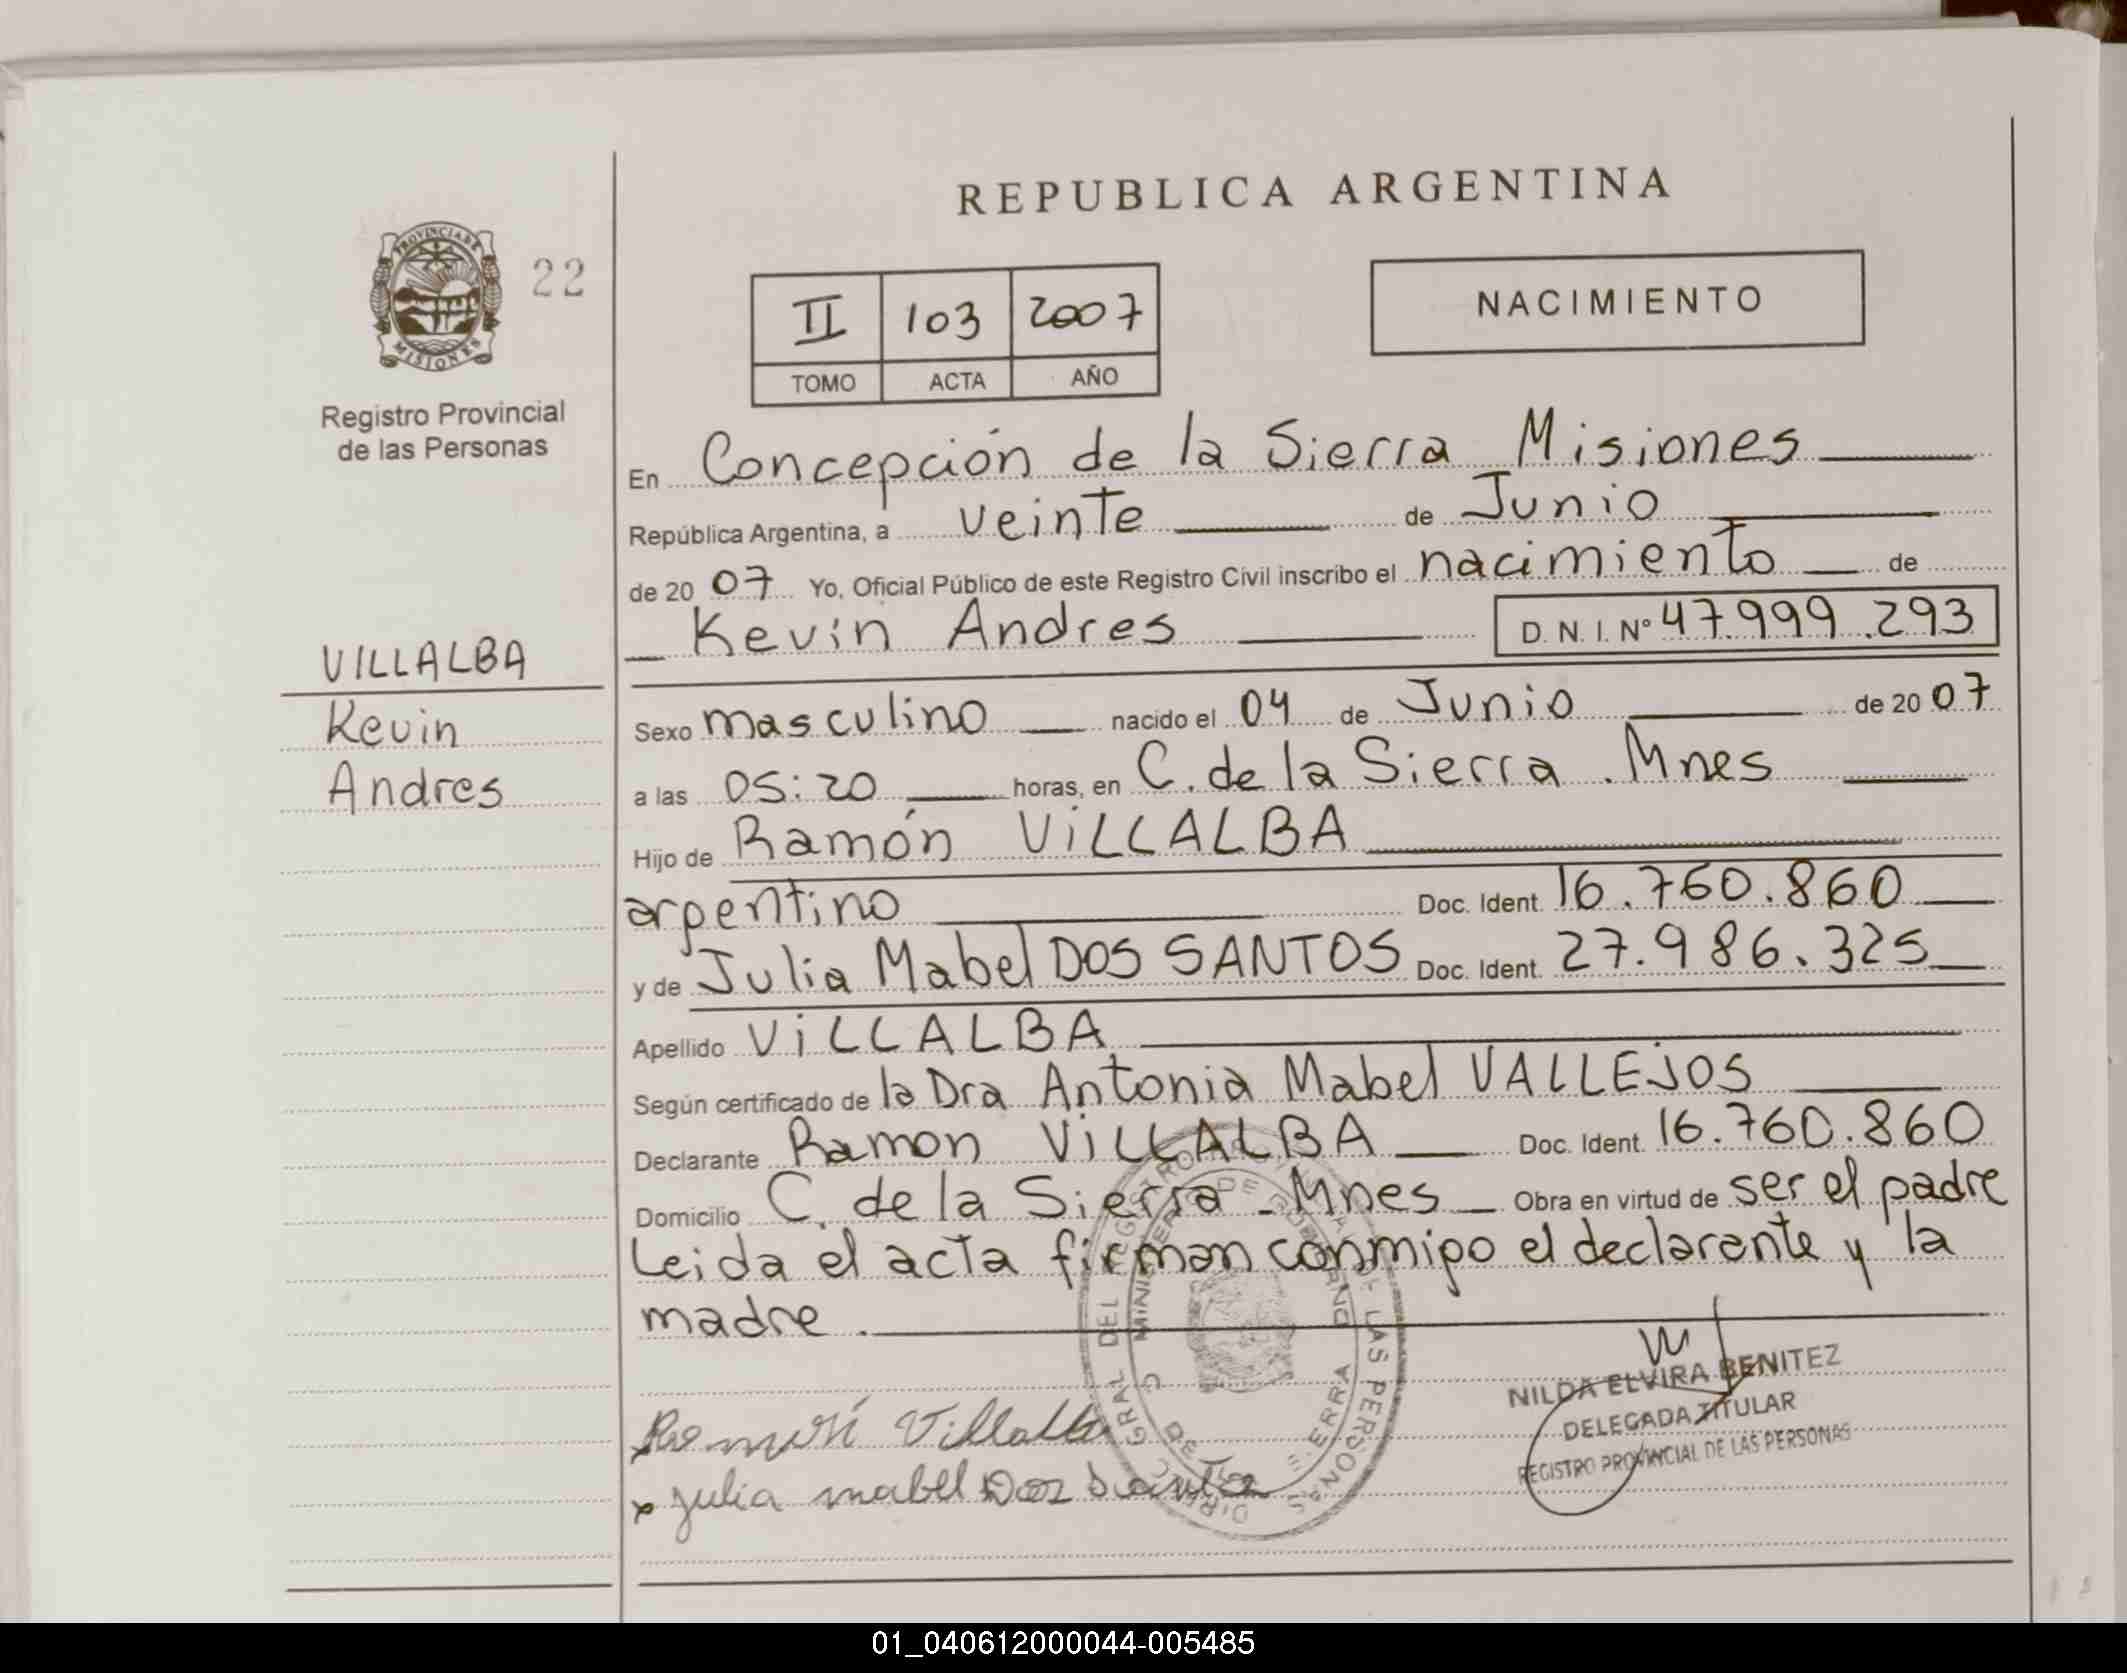 REPUBLICA ARGENTINA
PROVINCIA DE
MISIONES
22
Registro Provincial
de las Personas
II 103 2007
TOMO ACTA AÑO
NACIMIENTO
En Concepción de la Sierra Misiones
República Argentina, a veinte de Junio
de 20 07 Yo, Oficial Público de este Registro Civil inscribo el nacimiento de
Kevin Andres D. N. I. Nº 47.999.293
VILLALBA
Kevin
Andres
Sexo masculino nacido el 04 de Junio de 20 07
a las 05:20 horas, en C. de la Sierra . Mnes
Hijo de Ramón ViLLALBA
argentino Doc. Ident. 16.760.860
y de Julia Mabel DOS SANTOS Doc. Ident. 27.986.325
Apellido ViLLALBA
Según certificado de la Dra Antonia Mabel VALLEjOS
Declarante Ramon ViLLALBA Doc. Ident. 16.760.860
Domicilio C. de la Sierra - Mnes Obra en virtud de ser el padre
Leida el acta firman conmigo el declarante y la
madre.
Ramón Villalba
x Julia mabel Dos Santos
NILDA ELVIRA BENITEZ
DELEGADA TITULAR
REGISTRO PROVINCIAL DE LAS PERSONAS
01_040612000044-005485